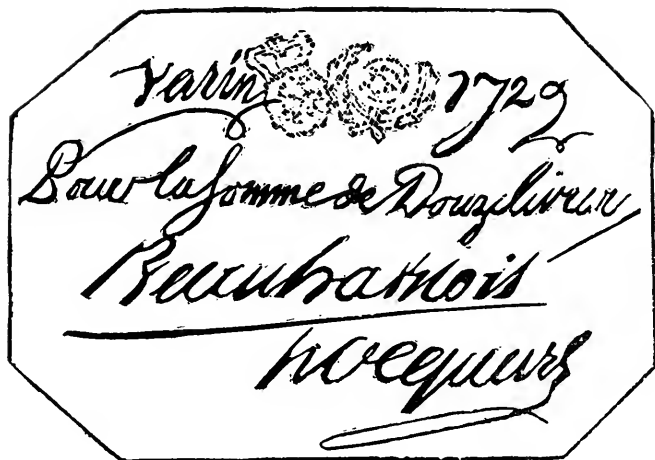 Varin 1729
Pour la somme de Douze livres
Beauharnois
hocquart